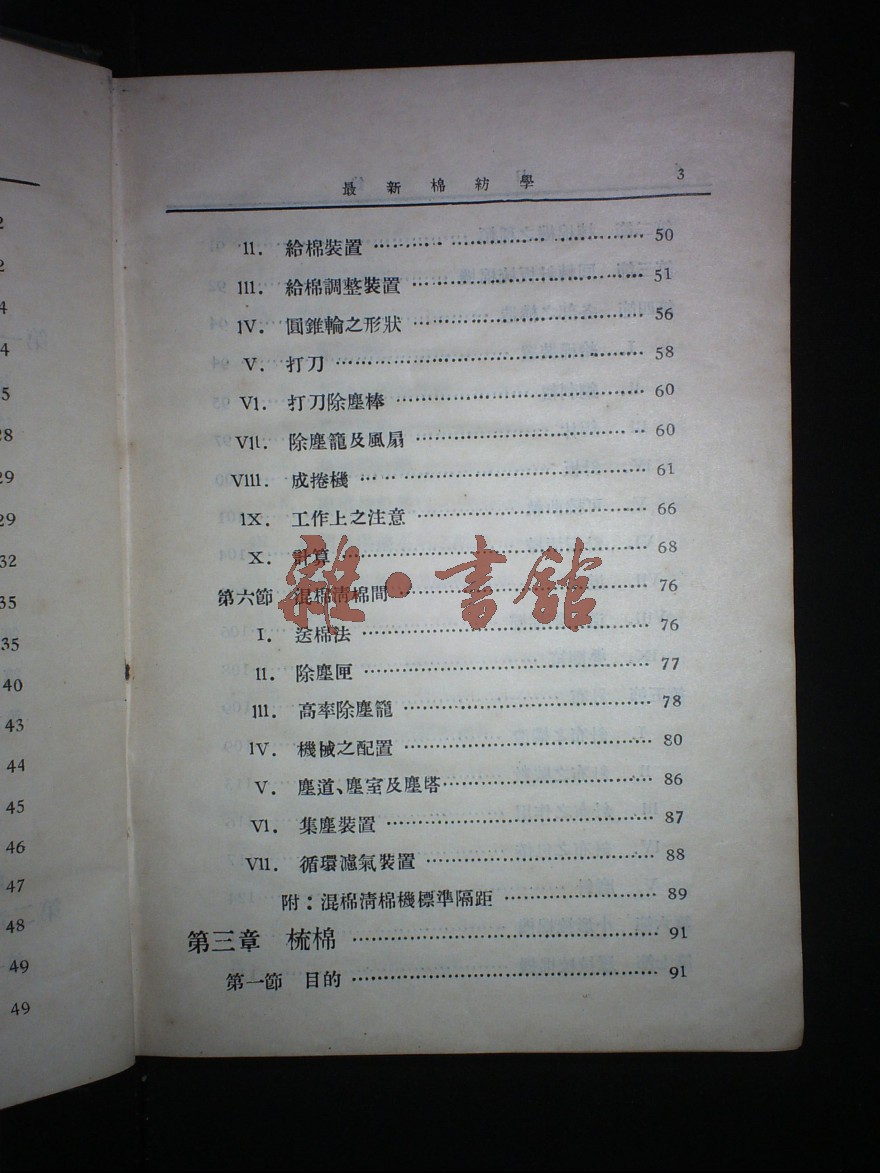 2
2
4
4
5
28
29
29
32
35
35
40
43
44
45
46
47
48
49
49
最新棉紡學 3
II. 給棉裝置 50
III. 給棉調整裝置 51
IV. 圓錐輪之形狀 56
V. 打刀 58
VI. 打刀除塵棒 60
VII. 除塵籠及風扇 60
VIII. 成捲機 61
IX. 工作上之注意 66
X. 計算 68
第六節 混棉清棉間 76
I. 送棉法 76
II. 除塵匣 77
III. 高率除塵籠 78
IV. 機械之配置 80
V. 塵道、塵室及塵塔 86
VI. 集塵裝置 87
VII. 循環濾氣裝置 88
附：混棉清棉機標準隔距 89
第三章 梳棉 91
第一節 目的 91
雜·書館